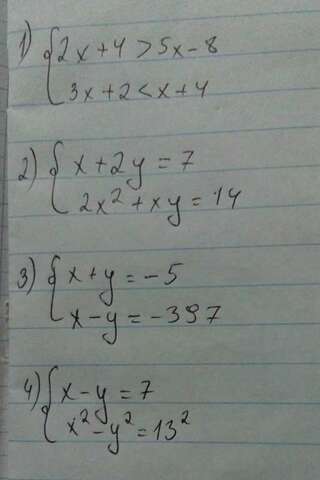 1) { 2x+4 > 5x-8
3x+2 < x+4
2) { x+2y = 7
2x² + xy = 14
3) { x+y = -5
x-y = -397
4) { x-y = 7
x²-y² = 13²